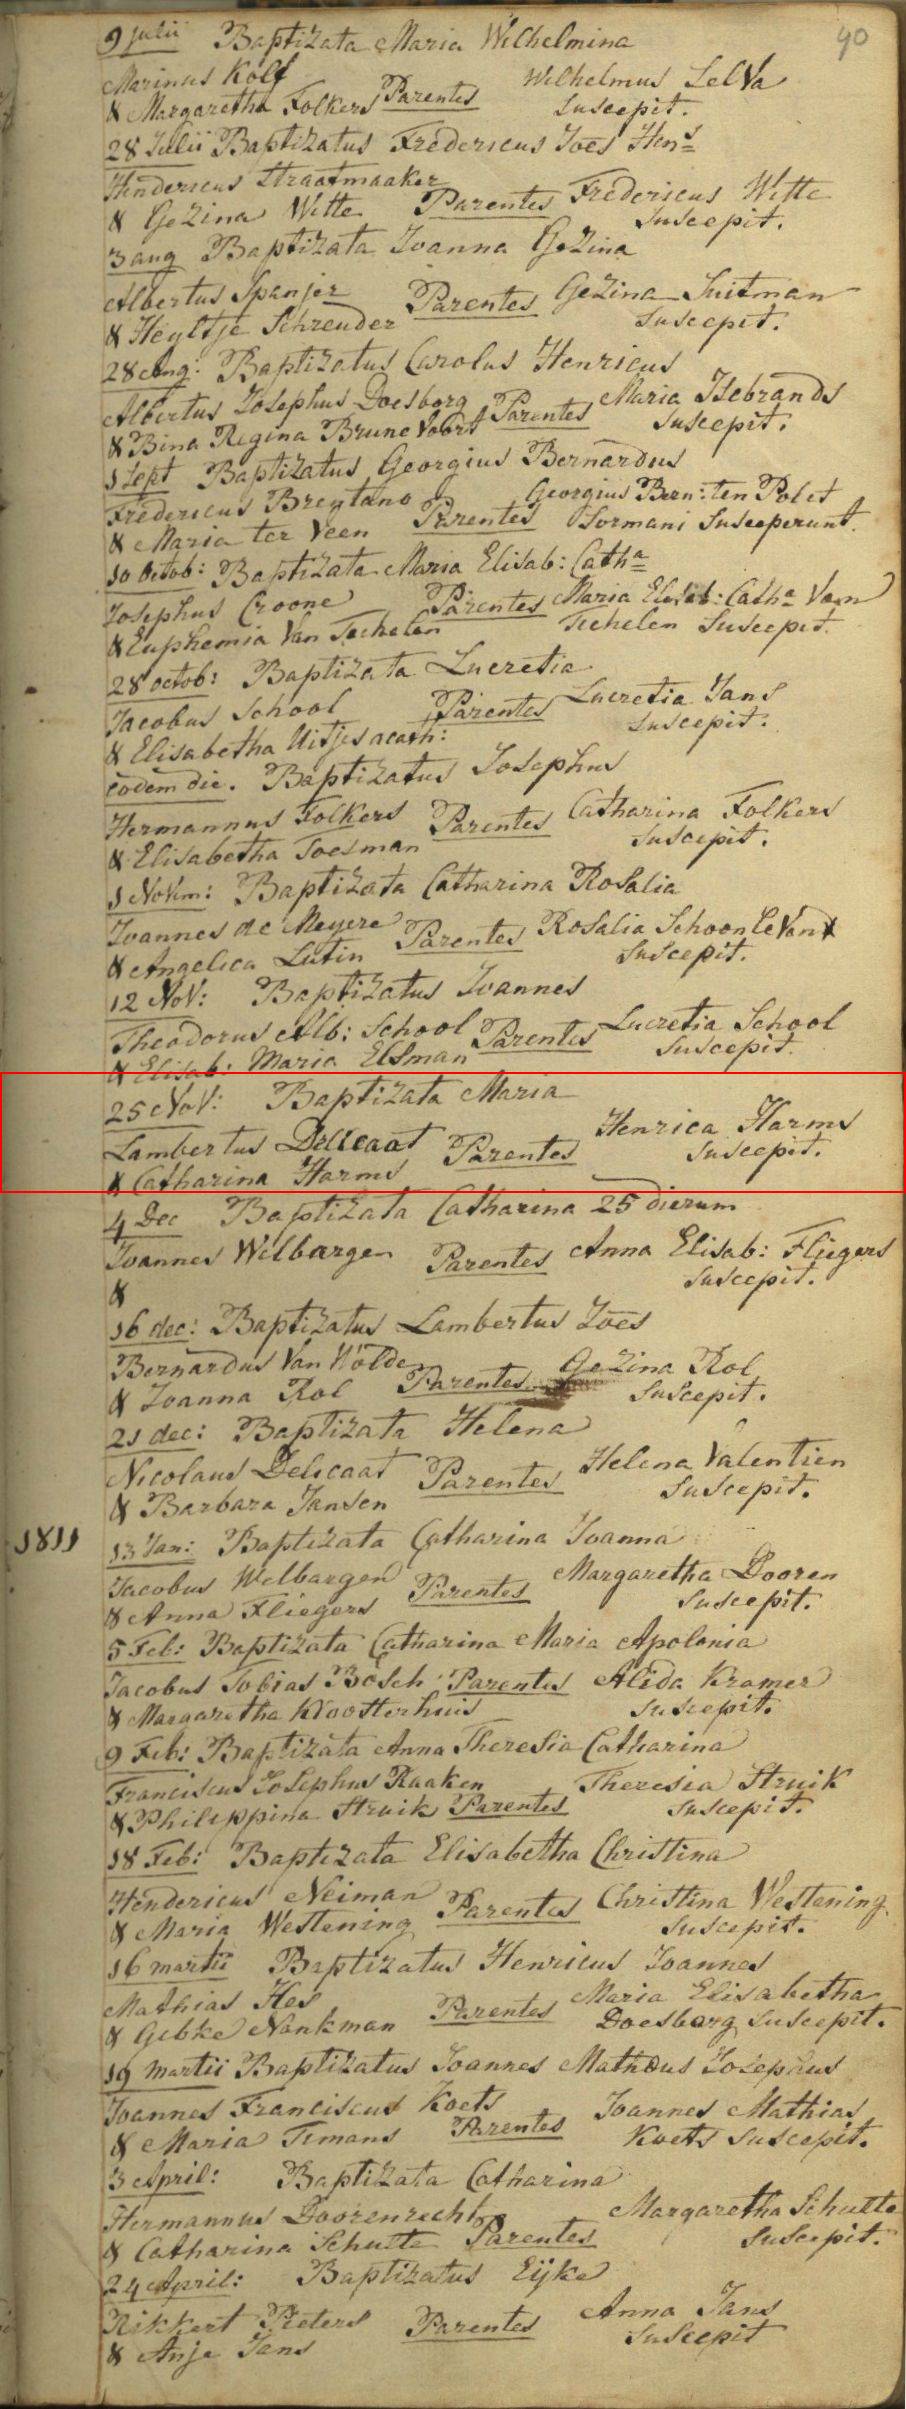 90
9 julii Baptizata Maria Wilhelmina
Marinus Kolf Wilhelmus Lelva
& Margaretha Folkers Parentes Suscepit.
28 Julii Baptizatus Fredericus Joēs Hens
Hendericus Straatmaaker Fredericus Witte
& Gezina Witte Parentes Suscepit.
3 aug Baptizata Joanna Gezina
Albertus Spanjer Parentes Gezina Suitman
& Heyltje Schreuder Suscepit.
28 Aug: Baptizatus Carolus Henricus
Albertus Josephus Doesborg Parentes Maria Isebrands
& Bina Regina Brunevoort Suscepit.
1 Sept Baptizatus Georgius Bernardus
Fredericus Brentano Georgius Bern: ten Polet
& Maria ter Veen Parentes Sormani Susceperunt.
10 Octob: Baptizata Maria Elisab: Catha
Josephus Croone Parentes Maria Elisab: Catha Van
& Euphemia Van Techelen Techelen Suscepit.
28 octob: Baptizata Lucretia
Jacobus School Parentes Lucretia Jans
& Elisabetha Uitjes acath: Suscepit.
eodem die. Baptizatus Josephus
Hermannus Folkers Parentes Catharina Folkers
& Elisabetha Toesman Suscepit.
1 Novm: Baptizata Catharina Rosalia
Joannes de Meyere Parentes Rosalia Schoonlevant
& Angelica Lutin Suscepit.
12 Nov: Baptizatus Joannes
Theodorus Alb: School Parentes Lucretia School
& Elisab: Maria Elsman Suscepit.
25 Nov: Baptizata Maria
Lambertus Delicaat Parentes Henrica Harms
& Catharina Harms Suscepit.
4 Dec Baptizata Catharina 25 dierum
Joannes Welbargen Parentes Anna Elisab: Fliegers
& Suscepit.
16 dec: Baptizatus Lambertus Joēs
Bernardus Van Wölde Parentes Gezina Rol
& Joanna Rol Suscepit.
21 dec: Baptizata Helena
Nicolaus Delicaat Parentes Helena Valentien
& Barbara Jansen Suscepit.
1811 13 Jan: Baptizata Catharina Joanna
Jacobus Welbargen Parentes Margaretha Dooren
& Anna Fliegers Suscepit.
5 Feb: Baptizata Catharina Maria Apolonia
Jacobus Tobias Bosch Parentes Alida Kramer
& Margaretha Kloosterhuis Suscepit.
9 Feb: Baptizata Anna Theresia Catharina
Franciscus Josephus Raaken Theresia Struik
& Philippina Struik Parentes Suscepit.
18 Feb: Baptizata Elisabetha Christina
Hendericus Neiman Parentes Christina Westening
& Maria Westening Suscepit.
16 martii Baptizatus Henricus Joannes
Mathias Hes Parentes Maria Elisabetha
& Gebke Nankman Doesburg Suscepit.
19 martii Baptizatus Joannes Matheus Josephus
Joannes Franciscus Koets Parentes Joannes Mathias
& Maria Timans Koets Suscepit.
3 April: Baptizata Catharina
Hermannus Doorenrecht Parentes Margaretha Schutte
& Catharina Schutte Suscepit.
24 April: Baptizatus Eijke
Rikkert Pieters Parentes Anna Jans
& Anje Jans Suscepit